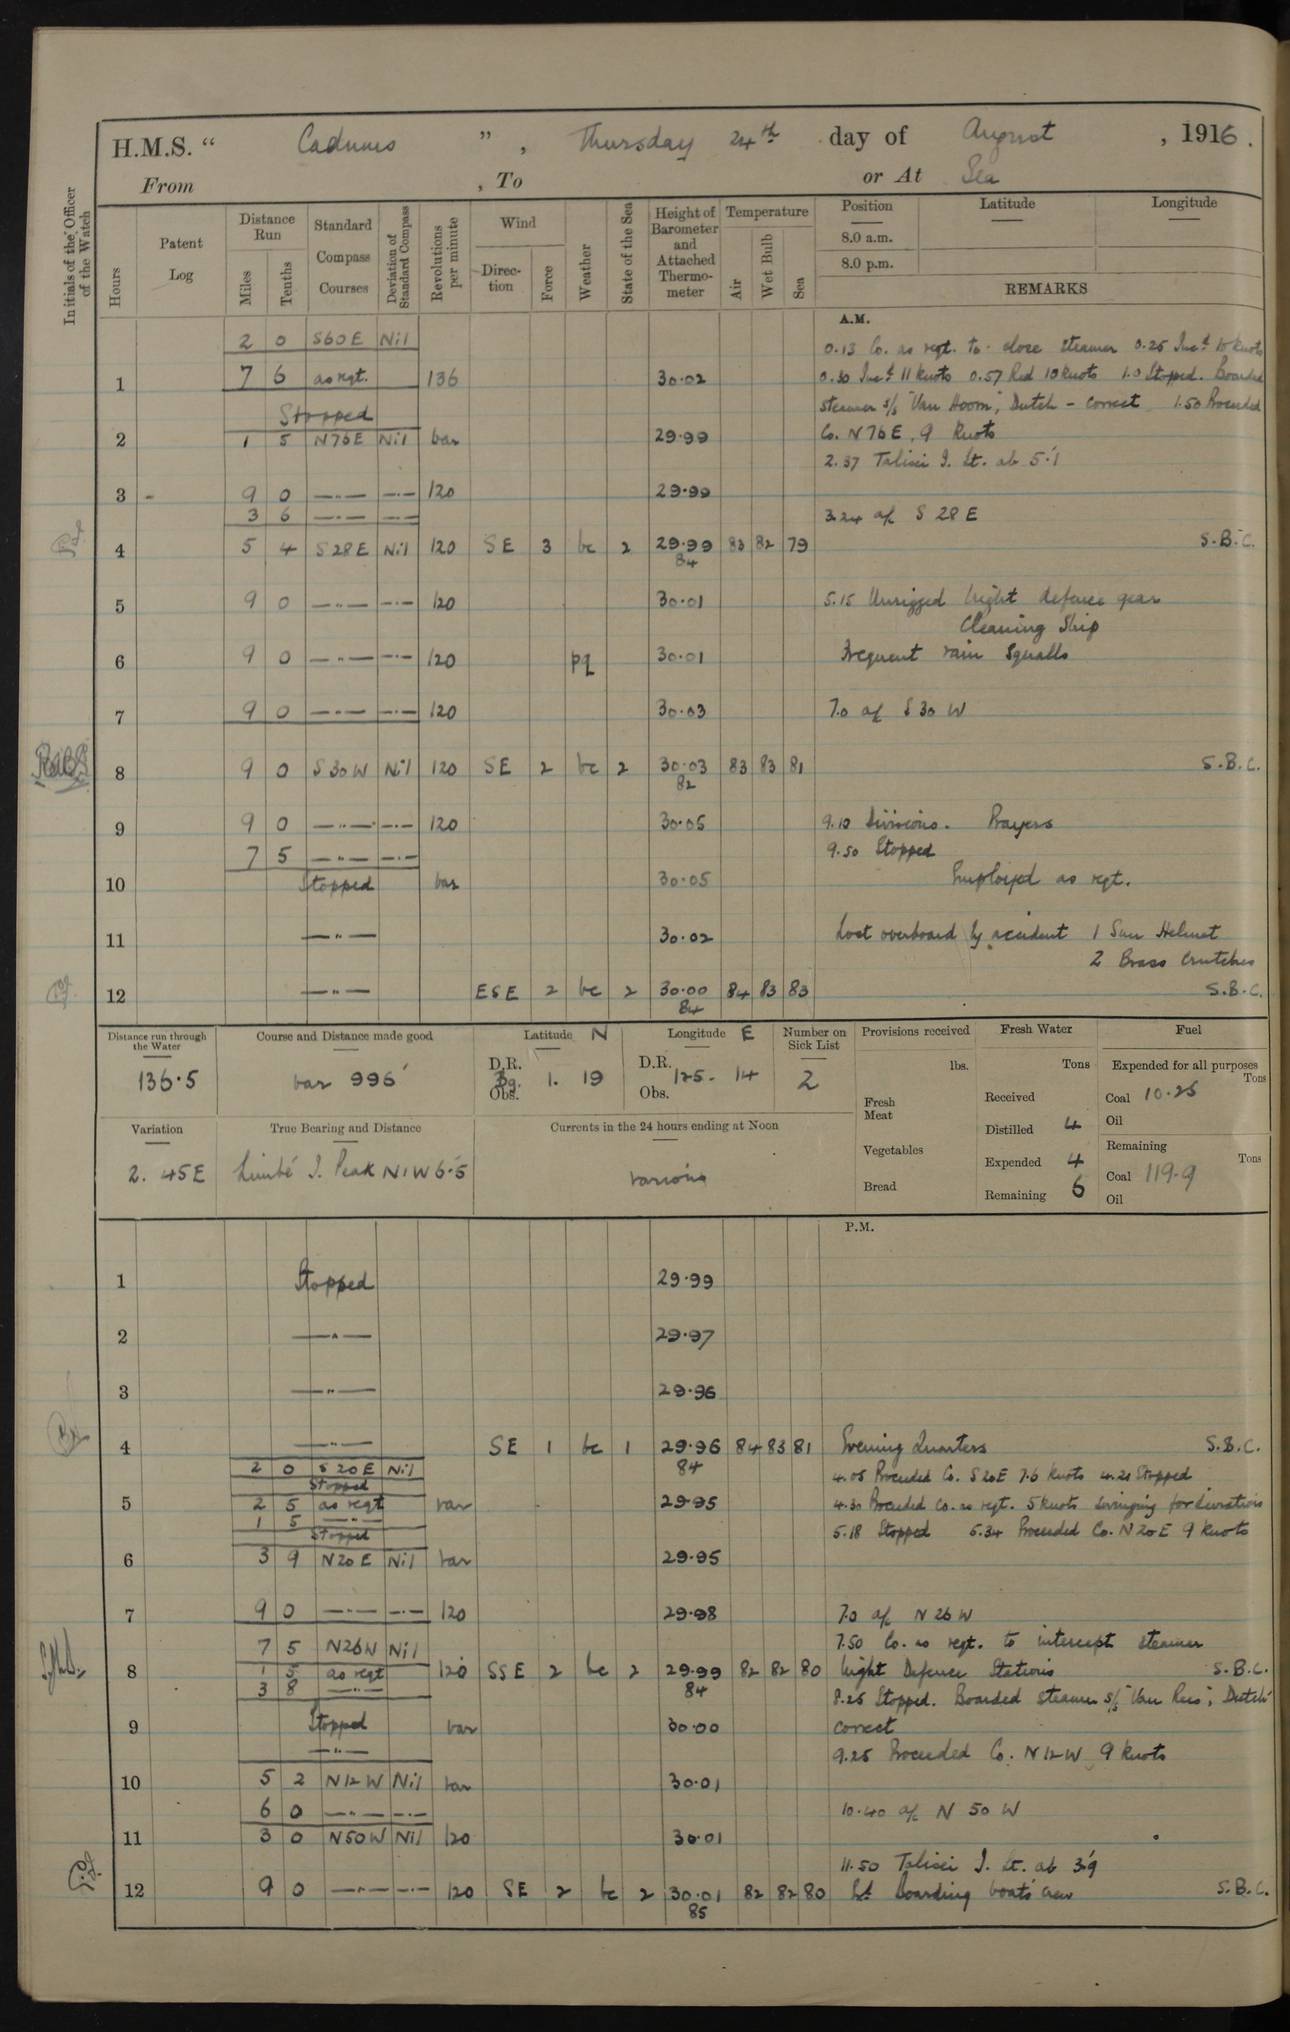 H.M.S. “ Cadmus ”, Thursday 24th day of August, 1916.
From , To or At Sea
Initials of the Officer of the Watch
Hours
Patent Log
Distance Run
Miles
Tenths
Standard Compass Courses
Deviation of Standard Compass
Revolutions per minute
Wind
Direction
Force
Weather
State of the Sea
Height of Barometer and Attached Thermometer
Temperature
Air
Wet Bulb
Sea
Position Latitude Longitude
8.0 a.m.
8.0 p.m.
REMARKS
A.M.
2 0 S60E Nil
0.13 Co. as reqt. to close steamer 0.25 Incd 10 knots
1 7 6 as reqt. 136 30.02 0.30 Incd 11 knots 0.57 Red 10 knots 1.0 Stopped. Boarded
Stopped steamer s/s "Van Hoorn", Dutch - correct 1.50 Proceeded
2 1 5 N76E Nil var 29.99 Co. N76E, 9 knots
2.37 Talisei I. Lt. ab 5.'1
3 - 9 0 —"— —"— 120 29.99
3 6 —"— —"— 3.24 a/c S 28 E
4 5 4 S28E Nil 120 SE 3 bc 2 29.99 83 82 79 S.B.C.
84
5 9 0 —"— —"— 120 30.01 5.15 Unrigged night defence gear
Cleaning Ship
6 9 0 —"— —"— 120 pq 30.01 Frequent rain squalls
7 9 0 —"— —"— 120 30.03 7.0 a/c S 30 W
8 9 0 S30W Nil 120 SE 2 bc 2 30.03 83 83 81 S.B.C.
82
9 9 0 —"— —"— 120 30.05 9.10 Divisions. Prayers
7 5 —"— —"— 9.50 Stopped
10 Stopped var 30.05 Employed as reqt.
11 —"— 30.02 Lost overboard by accident 1 Sun Helmet
2 Brass Crutches
12 —"— ESE 2 bc 2 30.00 84 83 83 S.B.C.
84
Distance run through the Water
136.5
Course and Distance made good
var 996'
Latitude N
D.R.
Bg. 1. 19
Obs.
Longitude E
D.R.
125. 14
Obs.
Number on Sick List
2
Provisions received
lbs.
Fresh Meat
Vegetables
Bread
Fresh Water
Tons
Received
Distilled 4
Expended 4
Remaining 6
Fuel
Expended for all purposes
Tons
Coal 10.25
Oil
Remaining
Tons
Coal 119.9
Oil
Variation
2. 45E
True Bearing and Distance
Limbé I. Peak N1W 6.'5
Currents in the 24 hours ending at Noon
various
P.M.
1 Stopped 29.99
2 —"— 29.97
3 —"— 29.96
4 —"— SE 1 bc 1 29.96 84 83 81 Evening Quarters S.B.C.
84
2 0 S20E Nil 4.05 Proceeded Co. S20E 7.6 knots 4.21 Stopped
Stopped
5 2 5 as reqt var 29.95 4.30 Proceeded Co. as reqt. 5 knots swinging for deviation
1 5 —"— 5.18 Stopped 5.34 Proceeded Co. N20E 9 knots
Stopped
6 3 9 N20E Nil var 29.95
7 9 0 —"— —"— 120 29.98 7.0 a/c N 26 W
7 5 N26W Nil 7.50 Co. as reqt. to intercept steamer
8 1 5 as reqt 120 SSE 2 bc 2 29.99 82 82 80 Night Defence Stations S.B.C.
3 8 —"— 84 8.25 Stopped. Boarded steamer s/s "Van Rees", Dutch
9 Stopped var 30.00 correct
—"— 9.25 Proceeded Co. N12W 9 knots
10 5 2 N12W Nil var 30.01
6 0 —"— —"— 10.40 a/c N 50 W
11 3 0 N50W Nil 120 30.01
11.50 Talisei I. Lt. ab 3.'9
12 9 0 —"— —"— 120 SE 2 bc 2 30.01 82 82 80 Boarding boats crew S.B.C.
85